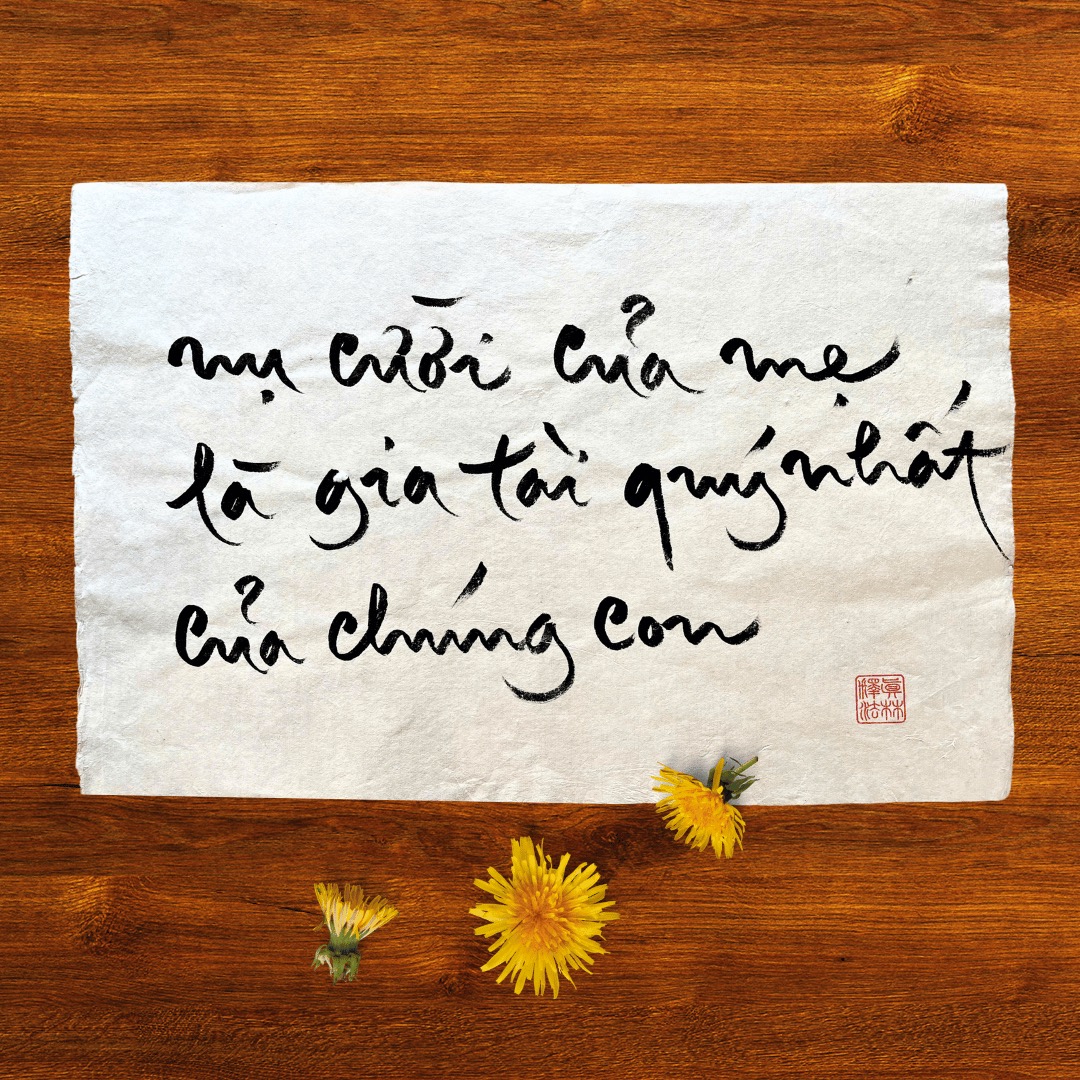 nụ cười của mẹ
là gia tài quý nhất
của chúng con
眞林
釋法